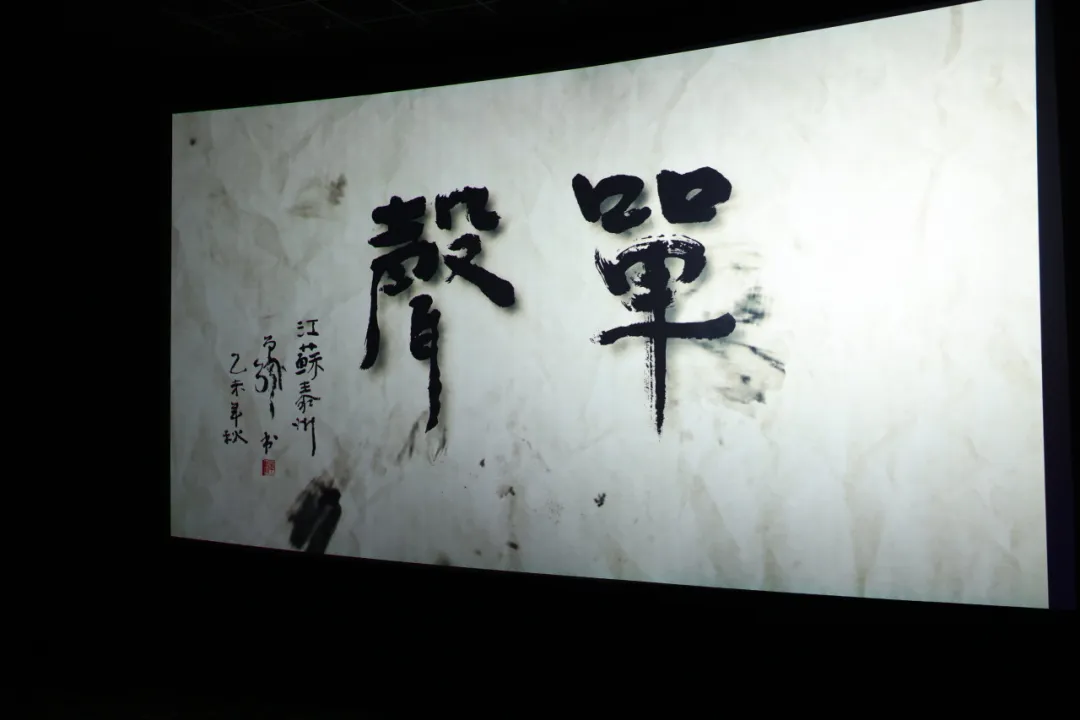 單聲
江蘇泰州
书
乙未年秋